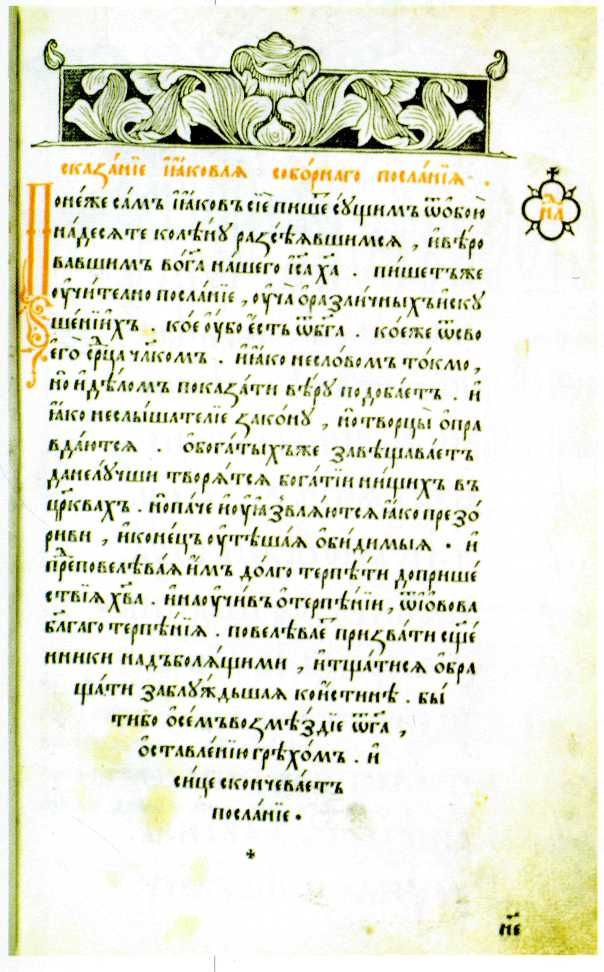 сказа́нїе і҆а́ковлѧ собо́рнаго посла́нїѧ .
Поне́же са́мъ і҆а́ковъ сїѐ пи́шеⷮ су́щимъ ѿѻ҆бою̀
на́десѧте колѣ́ну разсѣ́ѧвшимсѧ , и҆вѣ́ро
вавшимъ во́гⷭ҇а на́шего і҆са ха . пи́шетъже
оу҆чи́телно посла́нїе , оу҆ча̀ ѡ҆разли́чныхъ и҆ску
ше́нїиⷯ . ко́е оу҆́бо е҆́сть ѿбг҃а . ко́еже ѿсво
его̀ срⷣца чл҃комъ . и҆ꙗ҆́ко несло́вомъ то́кмо ,
но̀ и҆дѣ́ломъ показа́ти вѣ́ру подоба́етъ . и҆
ꙗ҆́ко неслы́шателїе зако́ну , но̀творцы̀ ѡ҆пра
вда́ютсѧ . ѡ҆бога́тыхъже завѣщава́етъ
данелу́чши творѧ́тсѧ бога́тїи ни́щихъ въ
цр҃квахъ . но̀па́че и҆оу҆ꙗзвлѧ́ютсѧ ꙗ҆́ко презо́
риви , и҆коне́цъ оу҆тѣша́ѧ ѻ҆би́димыѧ . и҆
преⷣповелѣва́ѧ и҆̀мъ до́лго терпѣ́ти доприше́
ствїѧ хв҃а . и҆наоу҆чи́въ ѡ҆терпѣ́нїи , ѿі҆ѡ́вова
бл҃га́го терпѣ́нїѧ . повелѣва́еⷮ призва́ти сщ҃е́
нники надъболѧ́щими , и҆тща́тисѧ ѡ҆бра
ща́ти заблу́ждьшаѧ ко́истинѣ . бы́
тибо ѡ҆се́мъвозмѣ́здїе ѿбг҃а ,
ѡ҆ставле́нїю грѣхо́мъ . и҆
си́це скончева́етъ
посла́нїе .
н҃е